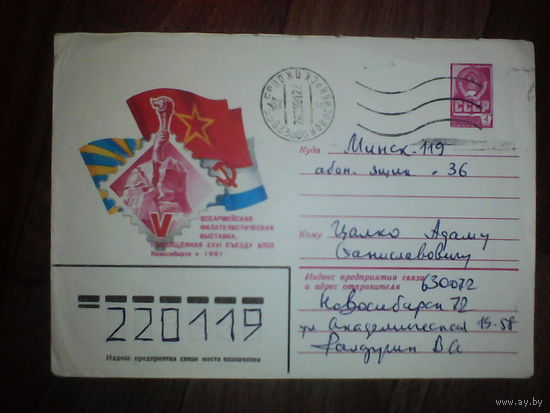 СССР
4
Куда Минск-119
абон. ящик . 36
V
ВСЕАРМЕЙСКАЯ
ФИЛАТЕЛИСТИЧЕСКАЯ
ВЫСТАВКА,
ПОСВЯЩЕННАЯ XXVI СЪЕЗДУ КПСС
Новосибирск • 1981
Кому Цалко Адаму
Станиславовичу
Индекс предприятия связи
и адрес отправителя 630072
Новосибирск 72
ул Академическая 15-58
ВА
220119
Индекс предприятия связи места назначения
www.ay.by